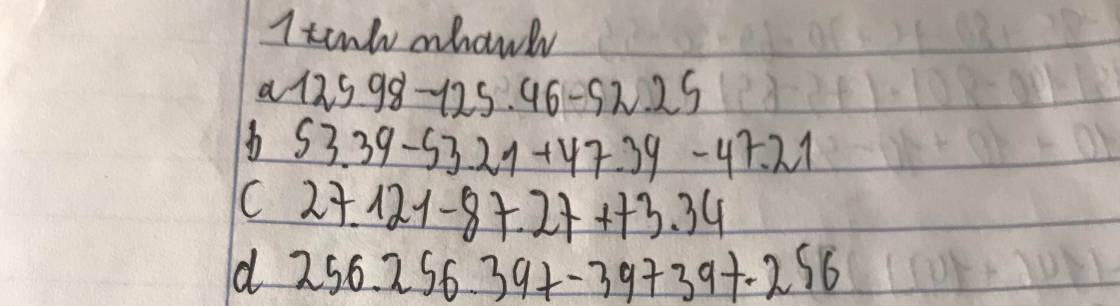 1 tính nhanh
a 125.98-125.46-52.25
b 53.39-53.21+47.39-47.21
c 27.121-87.27+73.34
d 256.256.397-397397.256